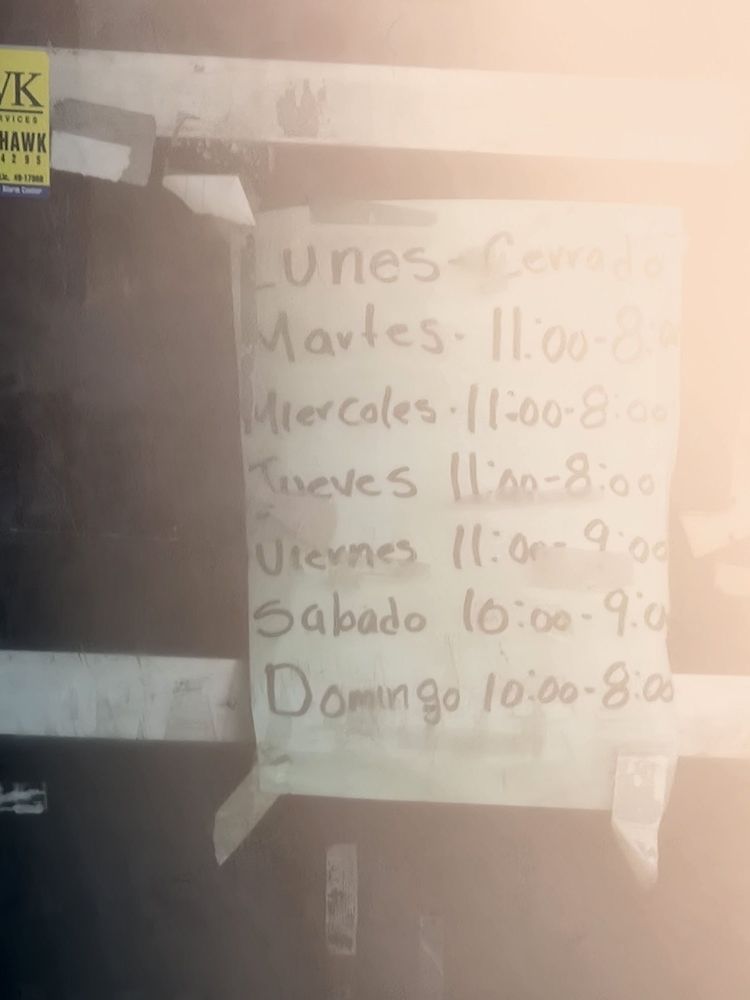 VK
RVICES
HAWK
4295
Lic. 49-17908
Lunes- Cerrado
Martes- 11:00-8:00
Miercoles-11:00-8:00
Jueves 11:00-8:00
Viernes 11:00-9:00
Sabado 10:00-9:0
Domingo 10:00-8:00